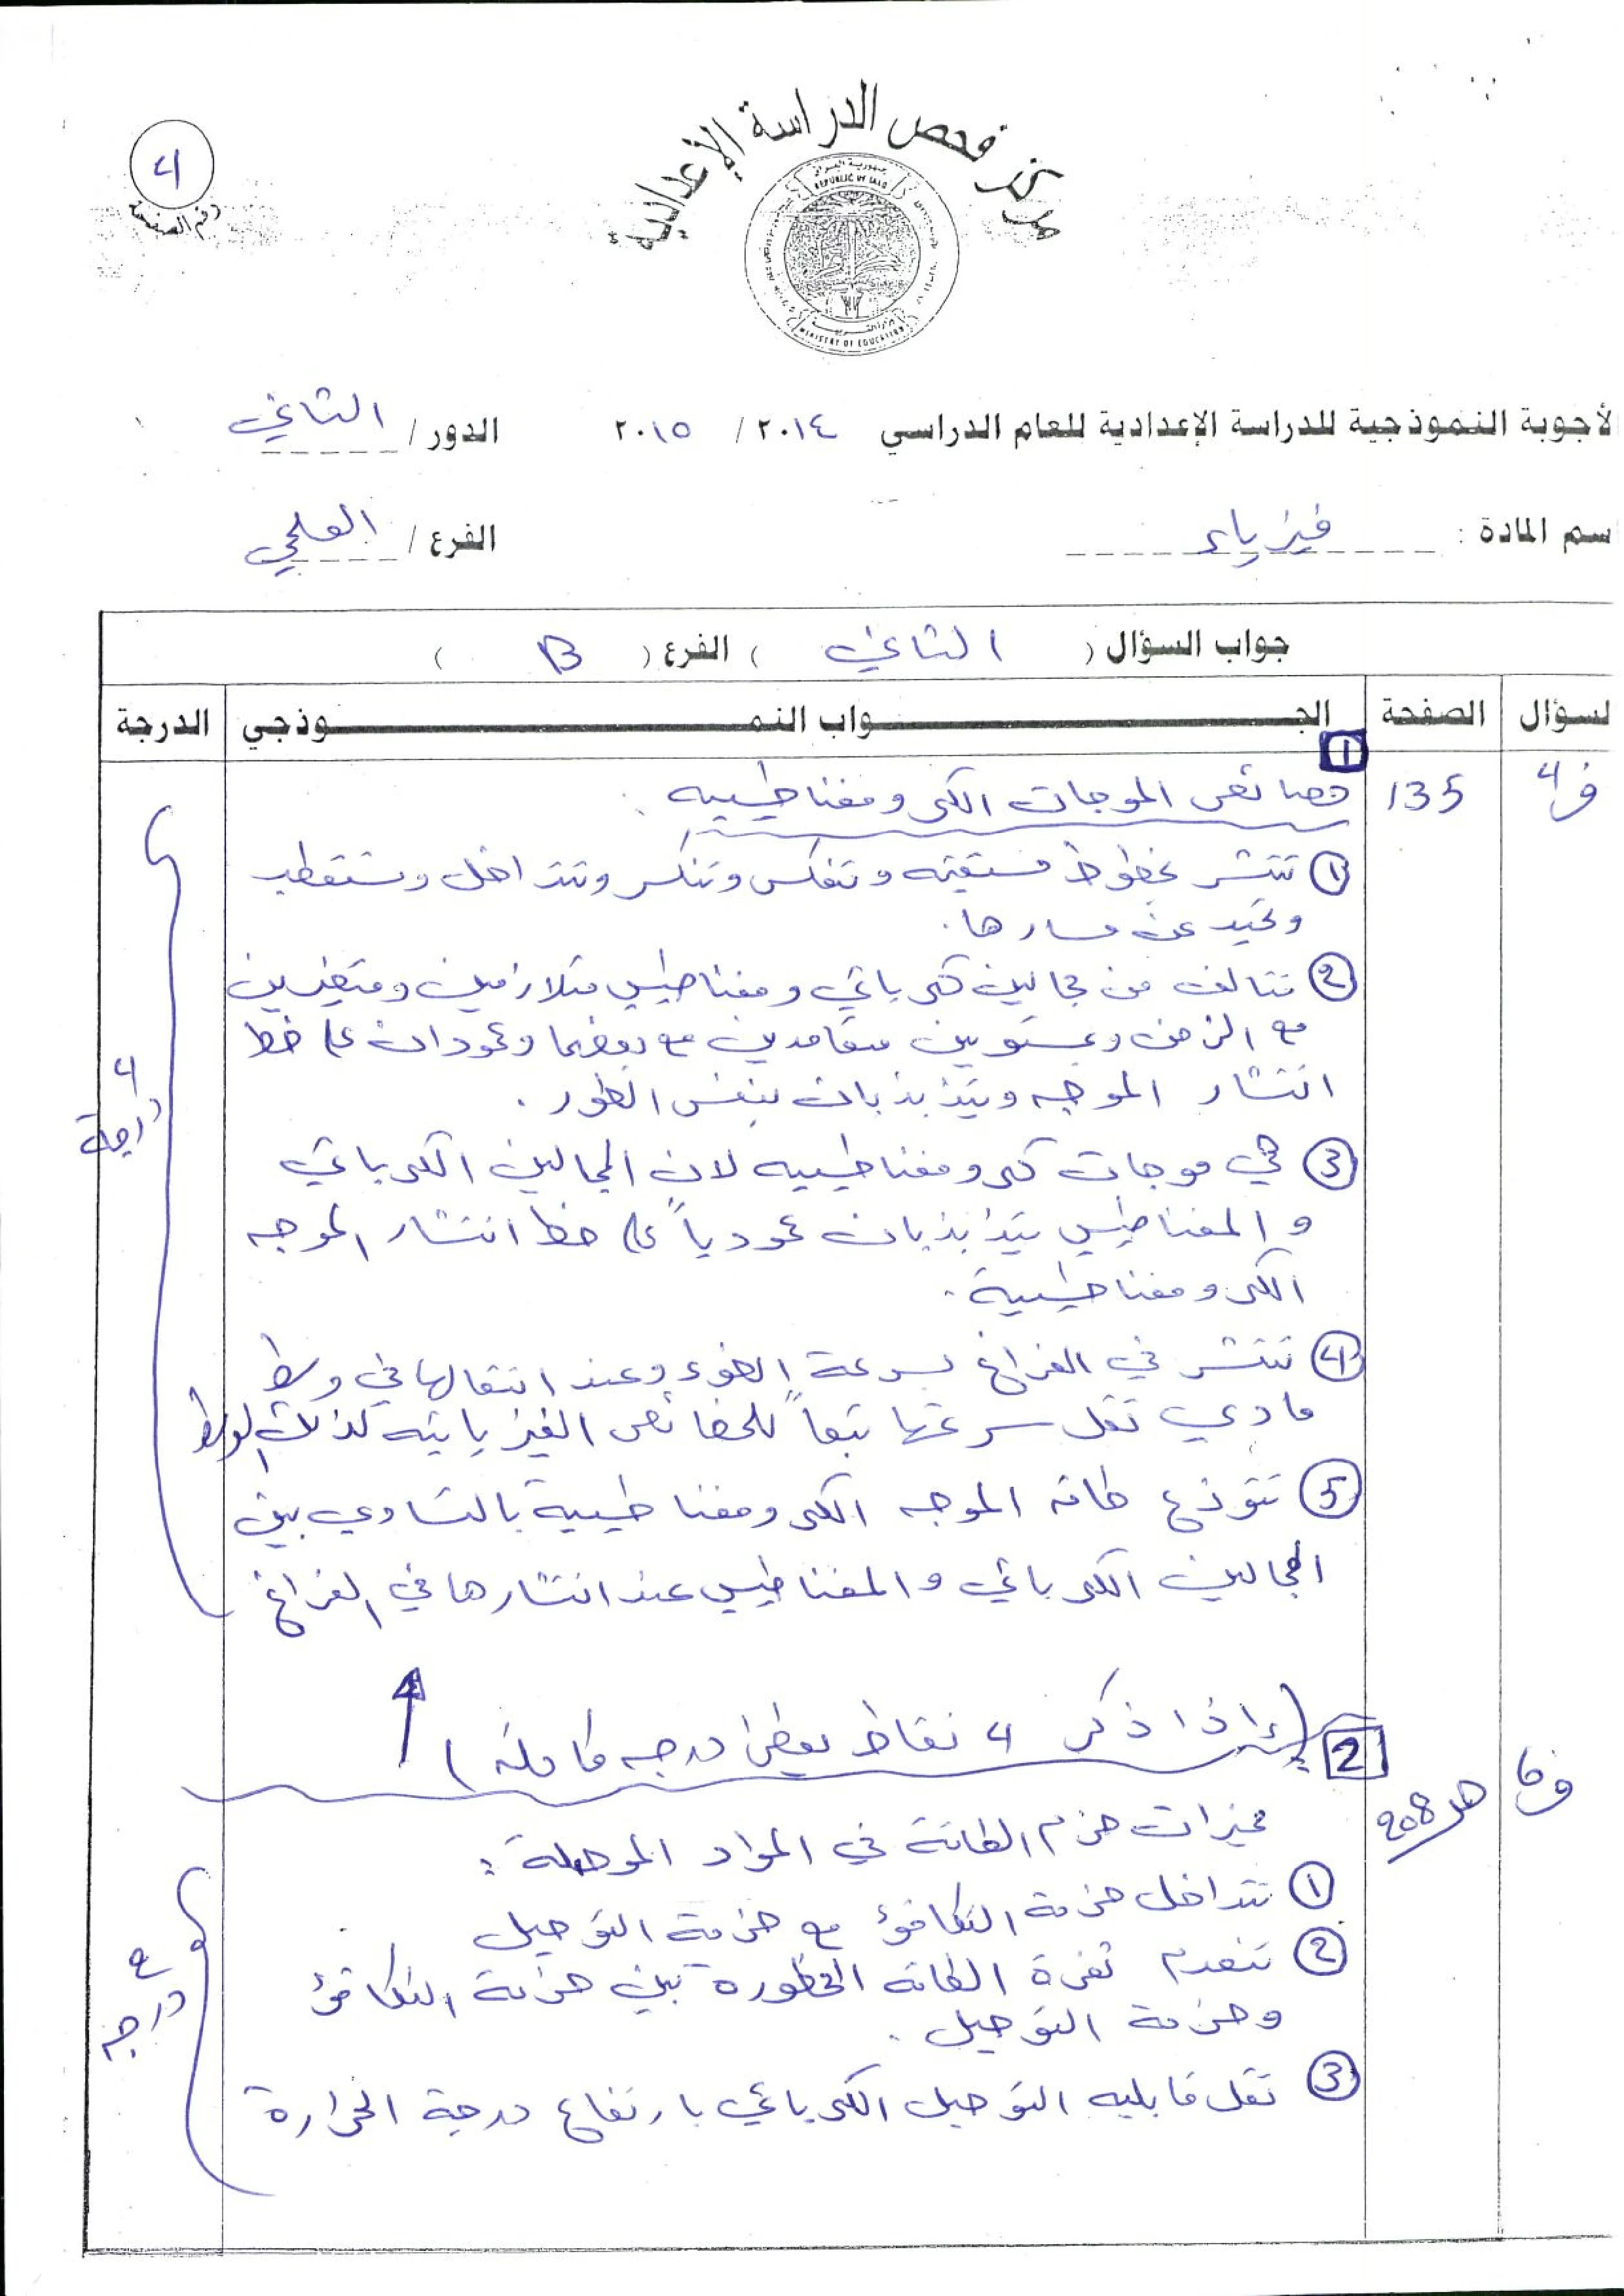 مركز فحص الدراسة الإعدادية
REPUBLIC OF IRAQ
MINISTRY OF EDUCATION
4
رقم الصفحة
لأجوبة النموذجية للدراسة الإعدادية للعام الدراسي ٢٠١٤ / ٢٠١٥ الدور / الثاني
سم المادة : فيزياء الفرع / العلمي
جواب السؤال ( الثاني ) الفرع ( B )
لسؤال الصفحة الجـــواب النمـــوذجي الدرجة
1
ف4 135 خصائص الموجات الكهرومغناطيسيه :
① تنتشر بخطوط مستقيمه وتنعكس وتنكسر وتتداخل وتستقطب
وتحيد عن مسارها .
② تتالف من مجالين كهربائي ومغناطيسي متلازمين ومتغيرين
مع الزمن وبمستويين متعامدين مع بعضهما وعموديان على خط
انتشار الموجه ويتذبذبان بنفس الطور .
③ هي موجات كهرومغناطيسيه لان المجالين الكهربائي
و المغناطيسي يتذبذبان عمودياً على خط انتشار الموجه
الكهرومغناطيسية .
④ تنتشر في الفراغ بسرعة الضوء وعند انتقالها في وسط
مادي تقل سرعتها تبعاً للخصائص الفيزيائيه لذلك الوسط
⑤ تتوزع طاقه الموجه الكهرومغناطيسية بالتساوي بين
المجالين الكهربائي و المغناطيسي عند انتشارها في الفراغ
4 درجة
( اذا ذكر 4 نقاط يعطى درجه كامله )
2
ص208
مميزات حزم الطاقة في المواد الموصلة :
① تتداخل حزمة التكافؤ مع حزمة التوصيل
② تنعدم ثغرة الطاقه المحظورة بين حزمة التكافؤ
وحزمة التوصيل .
③ تقل قابليه التوصيل الكهربائي بارتفاع درجة الحرارة
درجه